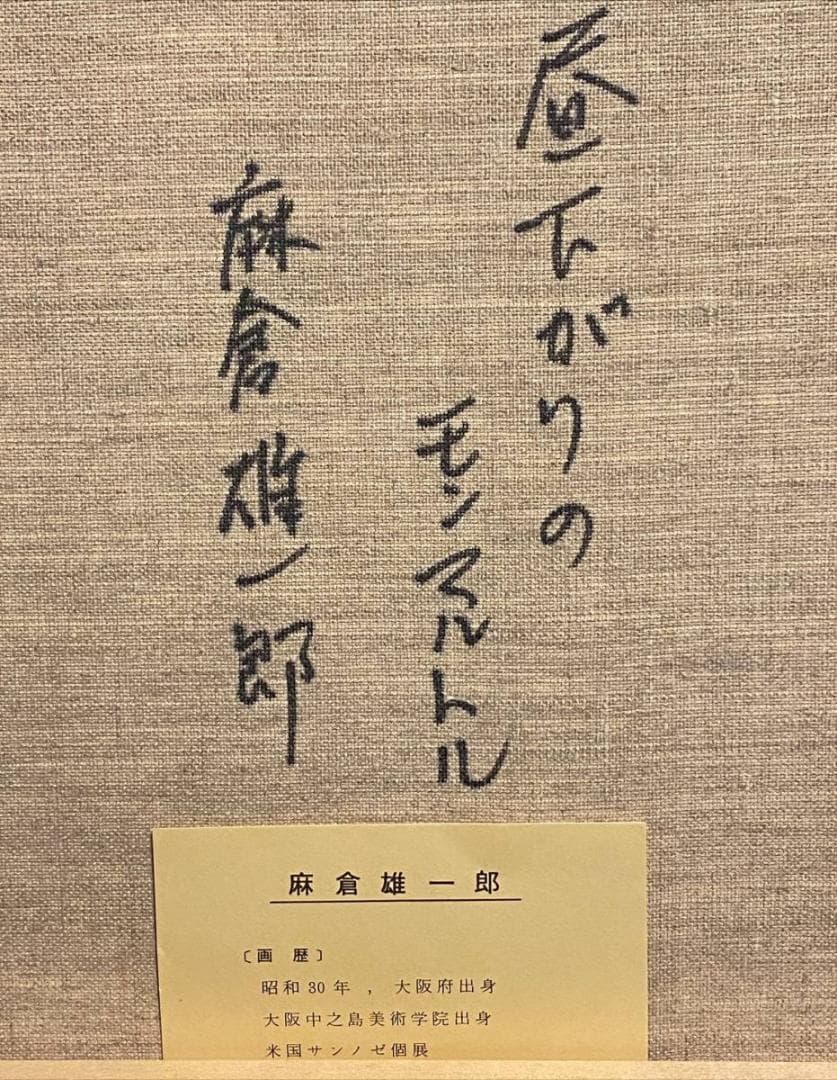 昼下がりの
モンマルトル
麻倉雄一郎
麻倉雄一郎
〔画 歴〕
昭和30年 , 大阪府出身
大阪中之島美術学院出身
米国サンノゼ個展